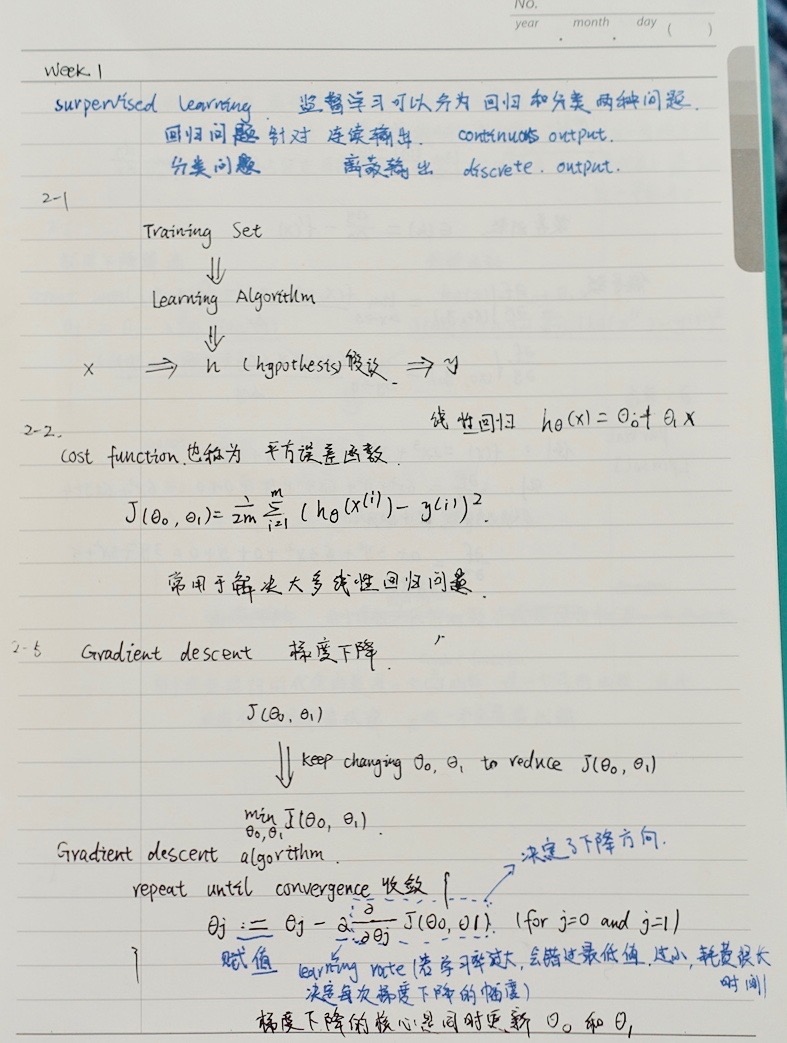 No.
year month day ( )
Week 1
surpervised learning. 监督学习可以分为 回归 和 分类 两种问题.
回归问题 针对 连续输出. continuous output.
分类问题 离散输出 discrete. output.
2-1
Training Set
⇓
Learning Algorithm
⇓
x ⇒ h (hypothesis) 假设. ⇒ y
线性回归 hθ(x) = θ₀ + θ₁ x
2-2.
cost function. 也称为 平方误差函数.
J(θ₀, θ₁) = 1/2m Σᵢ₌₁ᵐ (hθ(x⁽ⁱ⁾) - y(i))².
常用于解决大多线性回归问题.
2-5 Gradient descent 梯度下降.
J(θ₀, θ₁)
⇓ keep changing θ₀, θ₁ to reduce J(θ₀, θ₁)
min θ₀,θ₁ J(θ₀, θ₁).
Gradient descent algorithm.
决定了下降方向.
repeat until convergence 收敛 {
θj := θj - α ∂/∂θj J(θ0, θ1). (for j=0 and j=1)
}
赋值 learning rate (若学习率过大, 会错过最低值. 过小, 耗费很长时间
决定每次梯度下降的幅度)
梯度下降的核心是同时更新 θ₀ 和 θ₁